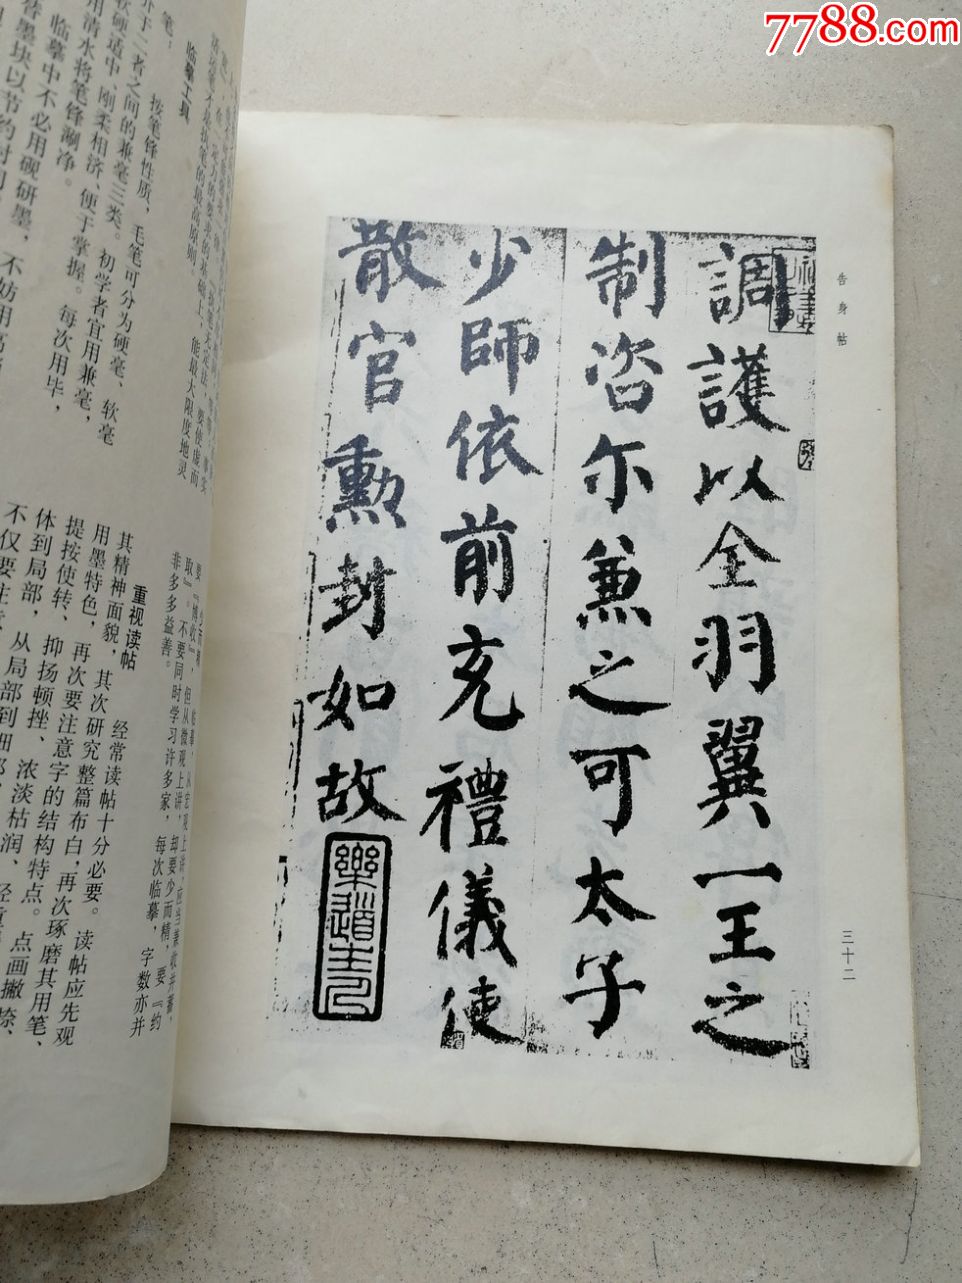 7788.com
告身帖
調護以全羽翼一王之
制咨尔兼之可太子
少師依前充禮儀使
散官勲封如故
樂道主人
三十二
临摹工具
按笔锋性质，毛笔可分为硬毫、软毫
介于二者之间的兼毫三类。初学者宜用兼毫，
软硬适中、刚柔相济、便于掌握。每次用毕，
用清水将笔锋涮净。
临摹中不必用砚研墨，不妨用
墨块以节约时间
取。不要同时学习许多家，每次临摹，字数亦并
非多多益善。
重视读帖
经常读帖十分必要。读帖应先观
其精神面貌，其次研究整篇布白，再次琢磨其用笔、
用墨特色，再次要注意字的结构特点。点画撇捺、
提按使转、抑扬顿挫、浓淡枯润、
体到局部，从局部到细部，
不仅要注意